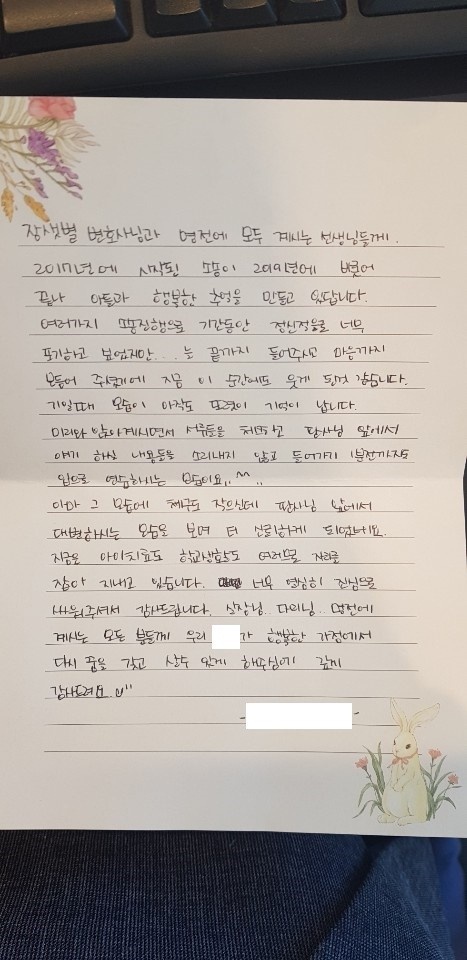 장샛별 변호사님과 명전에 모두 계시는 선생님들께.
2017년에 시작된 소송이 2019년에 벗어
끝나 아들과 행복한 추억을 만들고 있답니다.
여러가지 소송진행으로 기간동안 정신적을 너무
포기하고 싶었지만... 는 끝까지 들어주시고 마음까지
보듬어 주셨기에 지금 이 순간에도 웃게 된것 같습니다.
기일때 모습이 아직도 또렷이 기억이 납니다.
미리와 앉아계시면서 서류들을 체크하고 판사님 앞에서
얘기 하실 내용들을 소리내지 않고 들어가기 1분전까지도
입으로 연습하시는 모습이요,, ^^,,
아마 그 모습에 체구도 작으신데 판사님 앞에서
대변하시는 모습을 보며 더 신뢰하게 되었네요.
지금은 아이치료도 학교생활도 여러모로 자리를
잡아 지내고 있습니다. 너무 열심히 진심으로
싸워주셔서 감사드립니다. 실장님.. 대리님.. 명전에
계시는 모든 분들께 우리 가 행복한 가정에서
다시 꿈을 갖고 살수 있게 해주심에 깊이
감사드려요